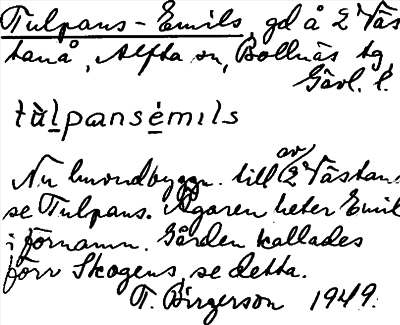 Tulpans-Emils, gd å 2 Väs
tanå, Alfta sn, Bollnäs tg,
Gävl. l.
tùlpansémɪls
Nu huvudbyggn. till 2 Västanå
av
se Tulpans. Ägaren heter Emil
i förnamn. Gården kallades
förr Skogens, se detta.
T. Birgerson 1949.